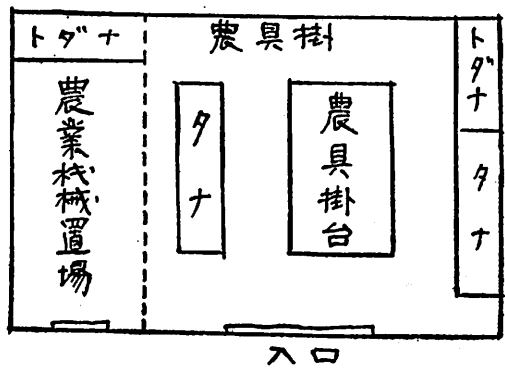 トダナ
農具掛
トダナ
農業机械置場
タナ
農具掛台
タナ
入口